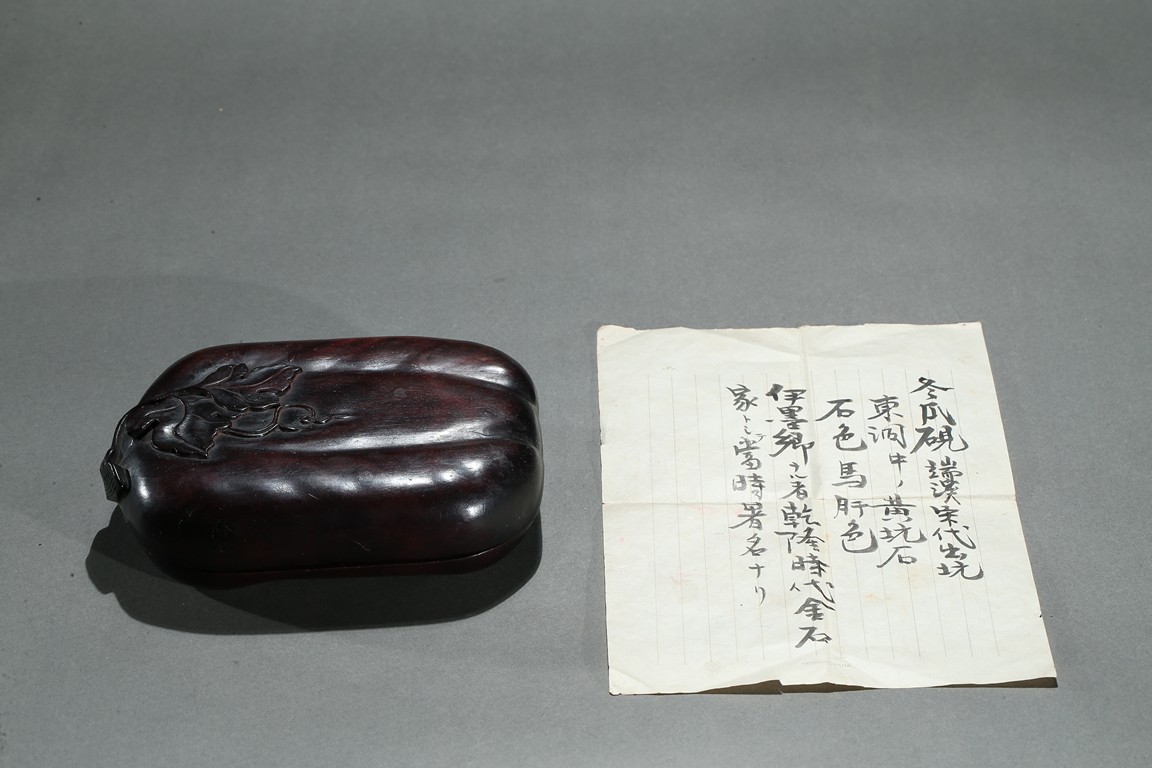 冬瓜硯 端渓宋代出坑
東洞中ノ黄坑石
石色馬肝色
伊墨卿ナル者乾隆時代金石
家トシテ當時著名ナリ